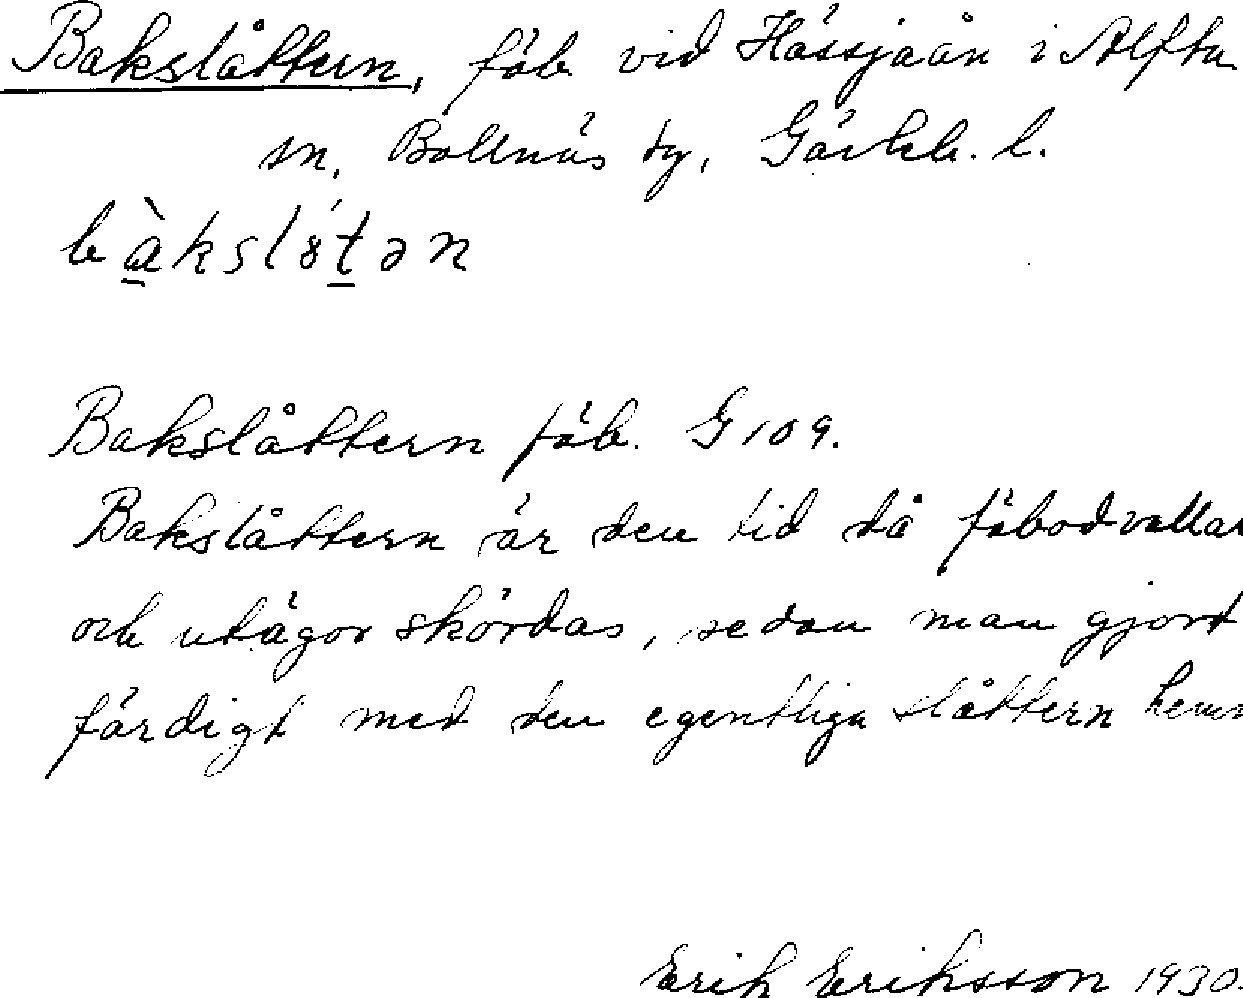 Bakslåttern, fäb vid Hässjaån i Alfta
sn, Bollnäs tg, Gävleb. l.
bàkslȣ́tən
Bakslåttern fäb. G 109.
Bakslåttern är den tid då fäbodvallar
och utägor skördas, sedan man gjort
färdigt med den egentliga slåttern hem
Erik Eriksson 1930.